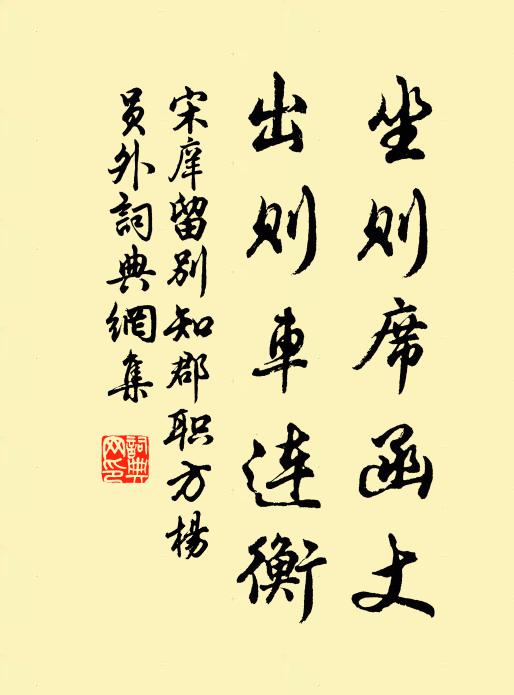 坐则席函丈
出则车连衡
宋庠留别知郡职方杨
员外詞典網集
詞典网印